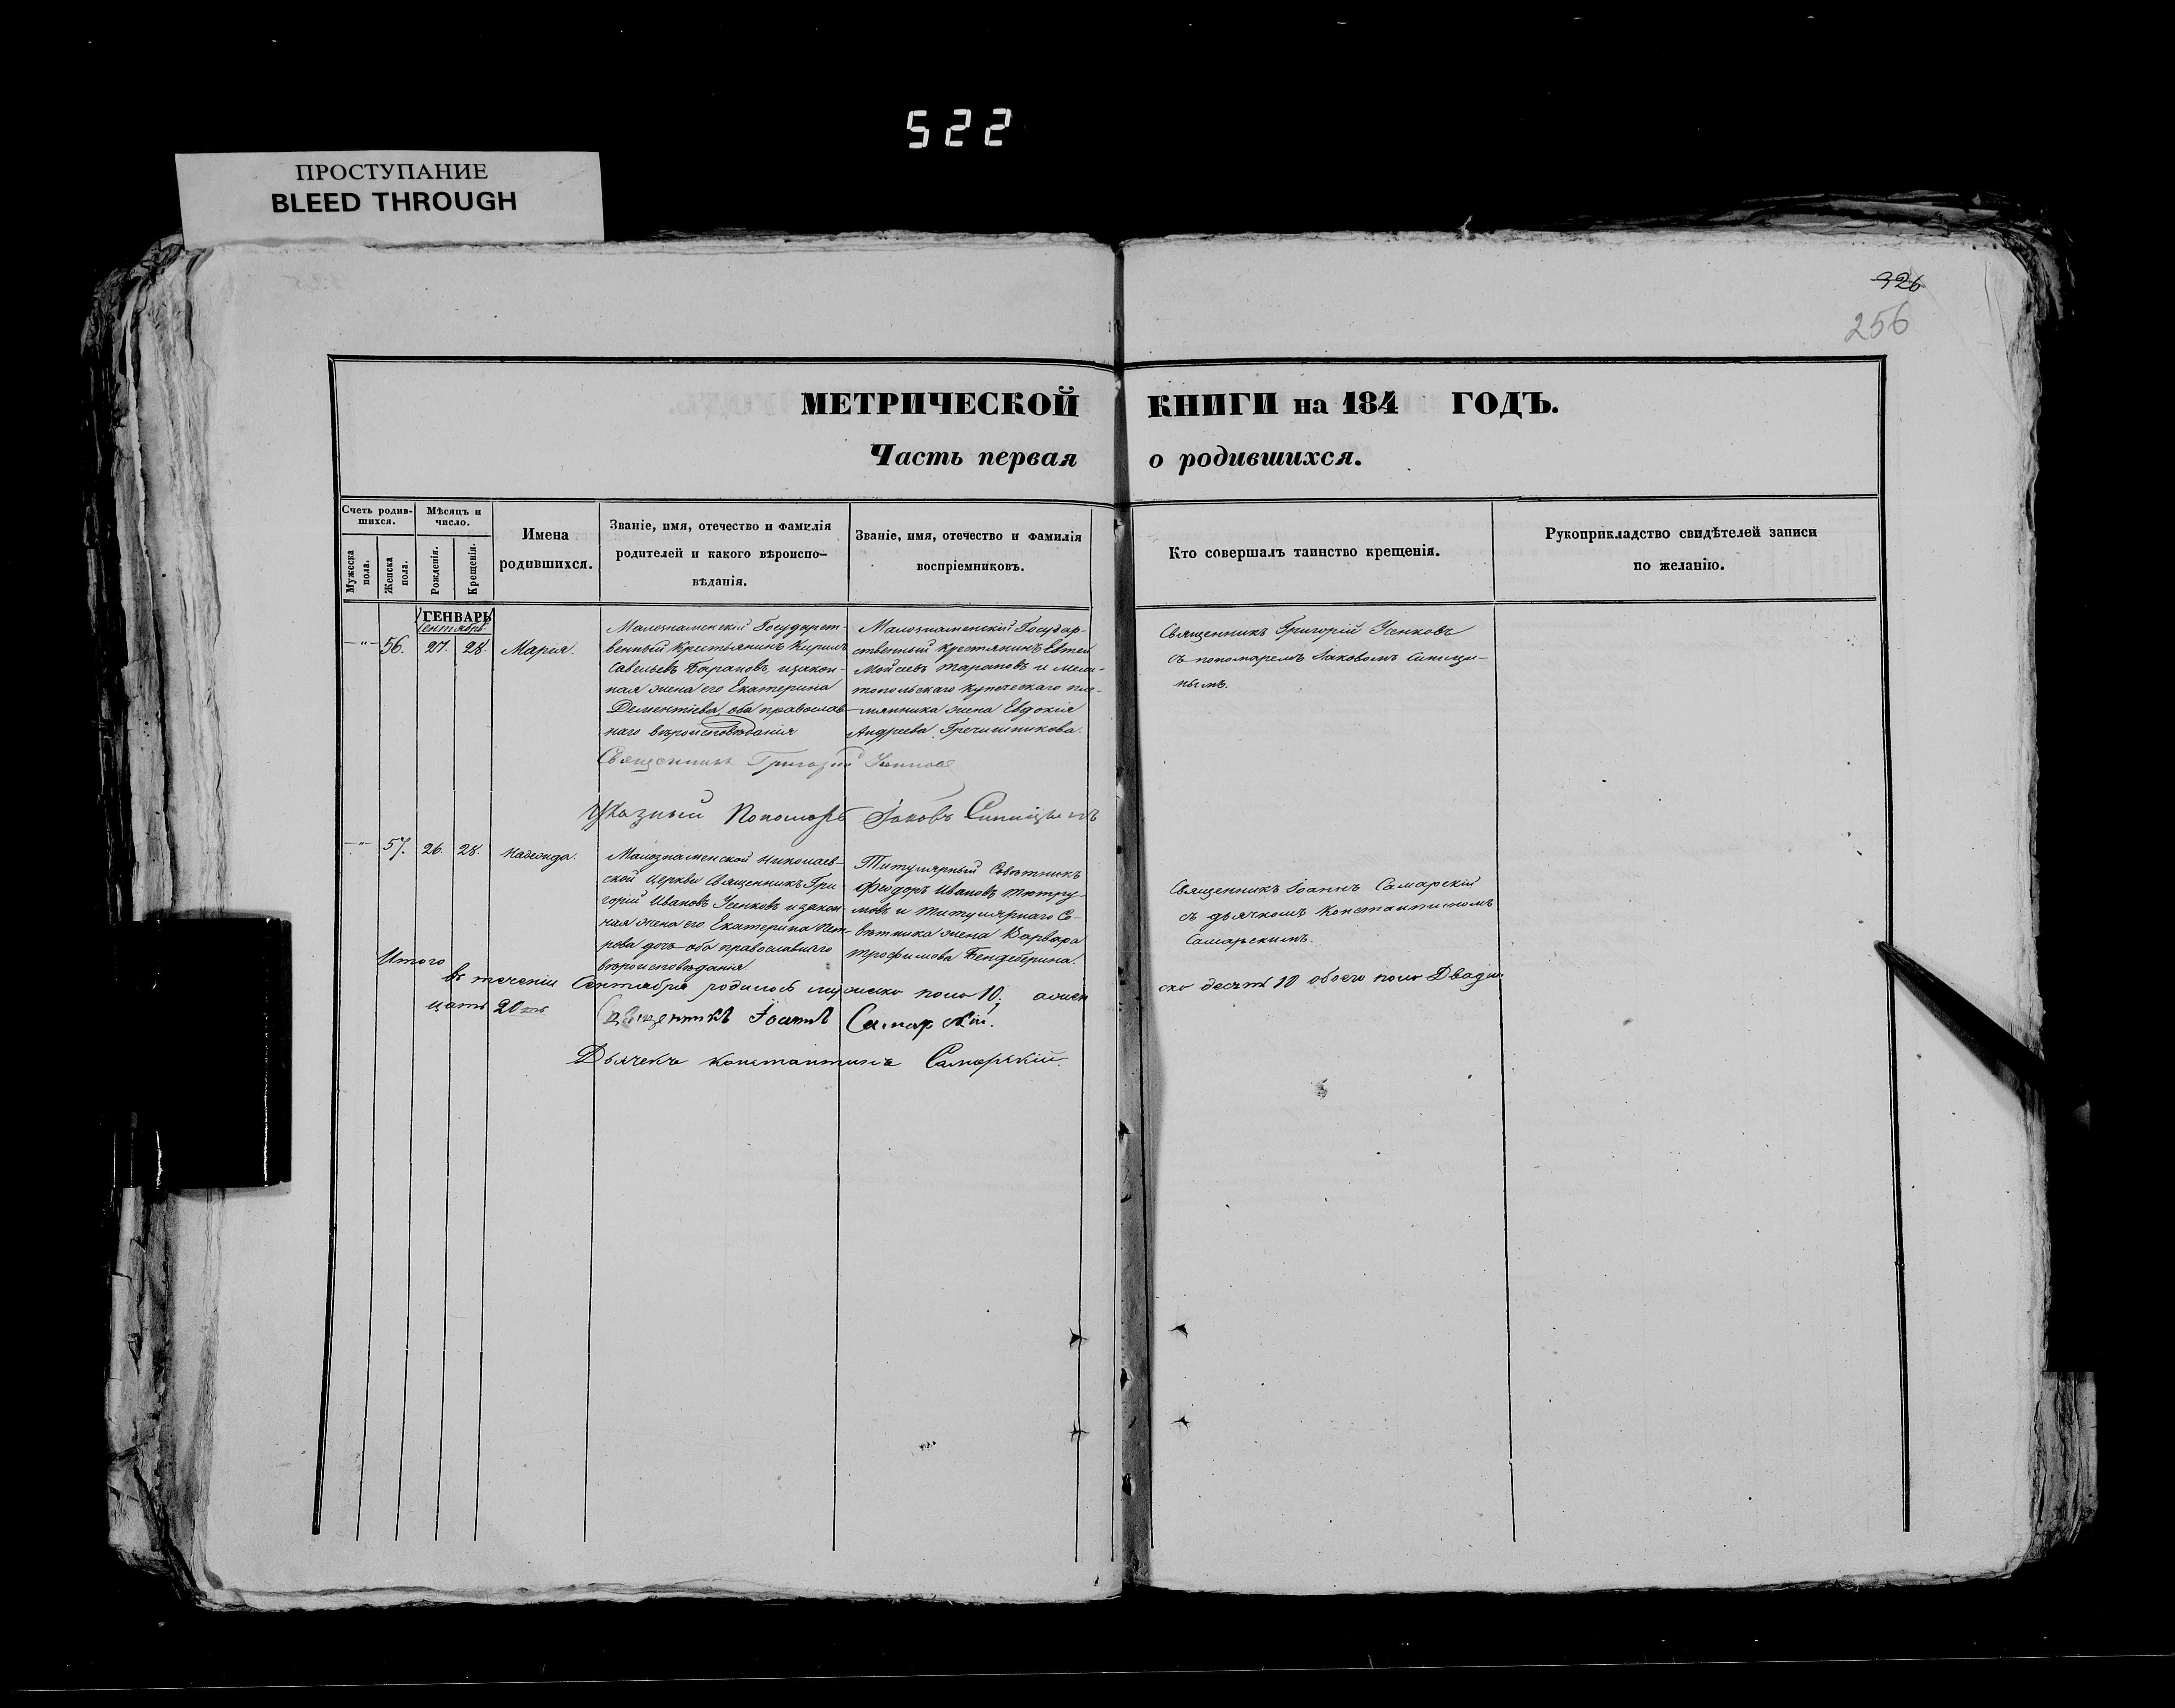 522
ПРОСТУПАНИЕ
BLEED THROUGH
326
256
МЕТРИЧЕСКОЙ КНИГИ на 184 ГОДЪ.
Часть первая о родившихся.
Счетъ родив-
шихся.
Мужеска пола.
Женска пола.
Мѣсяцъ и
число.
Рожденія.
Крещенія.
Имена
родившихся.
Званіе, имя, отечество и фамилія
родителей и какого вѣроиспо-
вѣданія.
Званіе, имя, отечество и фамилія
воспріемниковъ.
Кто совершалъ таинство крещенія.
Рукоприкладство свидѣтелей записи
по желанію.
ГЕНВАРЬ
Сентябрь
—"— 56. 27. 28 Марія.
Малознаменскій Государст-
венный Крестьянинъ Кирилъ
Савельевъ Барановъ, изакон-
ная жена его Екатерина
Дементіева оба православ-
наго вѣроисповѣданія
Малознаменскій Государ-
ственный Крестянинъ Евтей
Мойсеевъ Тарановъ и Мели-
топольскаго купеческаго пле-
мянника жена Евдокія
Андреева Гречишникова.
Священникъ Григорій Усенковъ
съ пономаремъ Іаковомъ Синици-
нымъ.
Священникъ Григорій Усенковъ
Указный Пономарь Іаковъ Синицынъ
—"— 57. 26. 28. Надежда.
Малознаменской Николаев-
ской Церкви Священникъ Гри-
горій Ивановъ Усенковъ изакон-
ная жена его Екатерина Пет-
рова дочь оба православнаго
вѣроисповѣданія
Титулярный Совѣтникъ
Феодоръ Ивановъ Тютрю-
мовъ и Титулярнаго Со-
вѣтника жена Варвара
Трофимова Бендеберина.
Священникъ Іоаннъ Самарскій
съ дьячкомъ Константиномъ
Самарскимъ.
Итого
въ теченіи Сентября родилось мужеска пола 10. а жен
ска десять 10 обоего пола Двад
цать 20ть
Священникъ Іоаннъ Самарскій.
Дьячекъ Константинъ Самарскій.